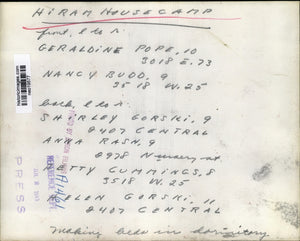 HIRAM HOUSE CAMP
front, l to r:
GERALDINE POPE, 10
3018 E. 73
NANCY BUDD, 9
3518 W. 25
back, l to r:
SHIRLEY GORSKI, 9
8407 CENTRAL
ANNA RASN, 9
8978 Nursery st
BETTY CUMMINGS, 8
3518 W. 25
HELEN GORSKI, 11
8407 CENTRAL
Making beds in dormitory
PRESS